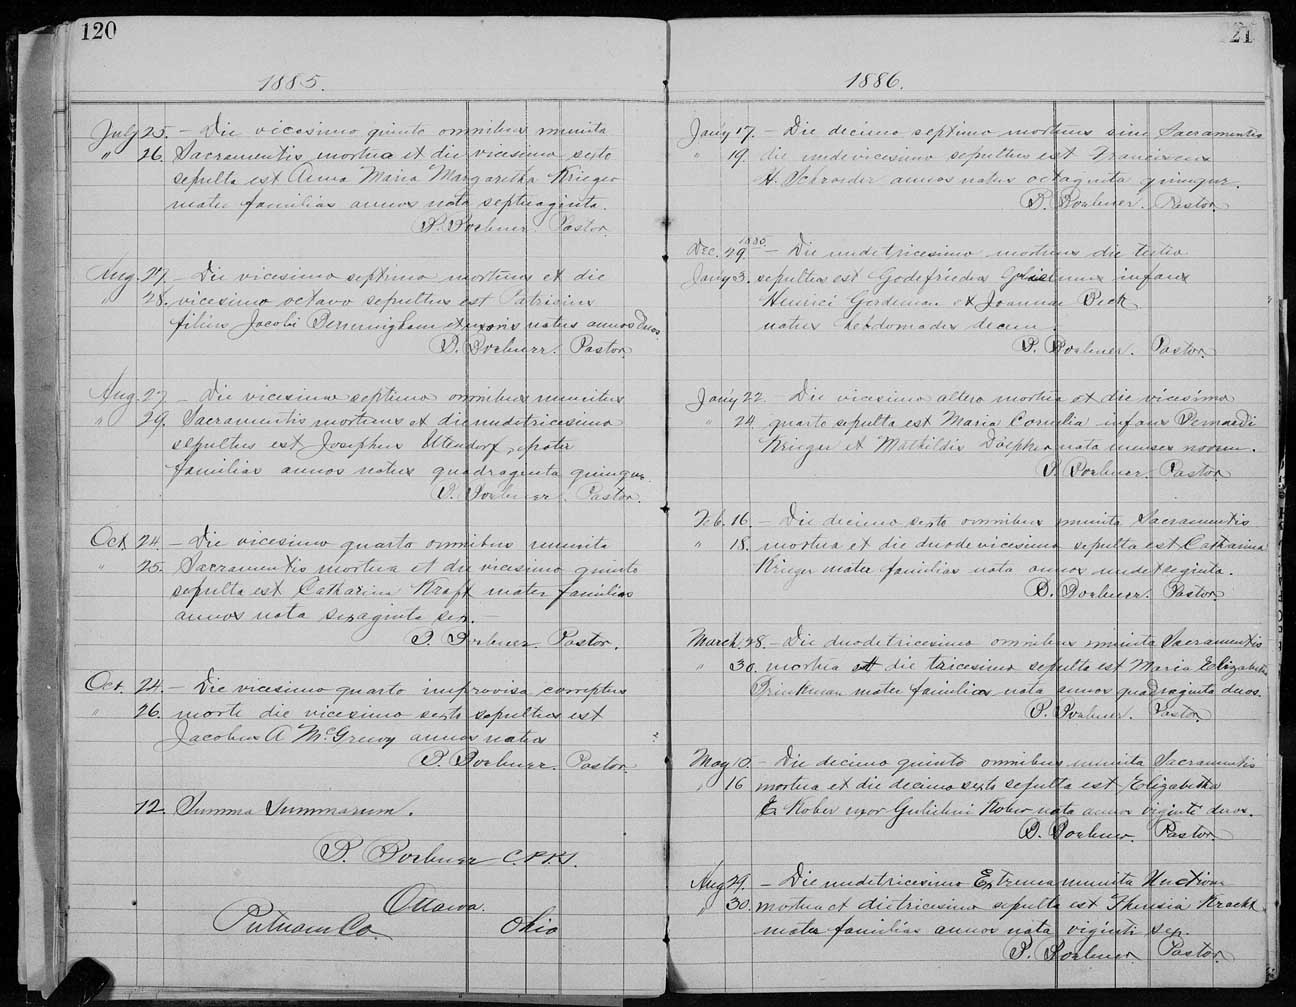 120
1885.
July 25. – Die vicesimo quinto omnibus munita
" 26. Sacramentis mortua et die vicesimo sexto
sepulta est Anna Maria Margaretha Krieger
mater familias annos nata septuaginta.
P. Poebner. Pastor.
Aug. 27. – Die vicesimo septimo mortuus et die
" 28. vicesimo octavo sepultus est Patricius
filius Jacobi Bermingham et uxoris natus annos duos.
P. Poebner. Pastor.
Aug. 27 – Die vicesimo septimo omnibus munitus
" 29. Sacramentis mortuus et die undetricesimo
sepultus est Josephus Utendorf, pater
familias annos natus quadraginta quinque.
P. Poebner. Pastor.
Oct. 24. – Die vicesimo quarto omnibus munita
" 25. Sacramentis mortua et die vicesimo quinto
sepulta est Catharina Kraft mater familias
annos nata sexaginta sex. –
P. Poebner. Pastor.
Oct. 24. – Die vicesimo quarto improvisa correptus
" 26. morte die vicesimo sexto sepultus est
Jacobus A McGreevy annos natus ?
P. Poebner. Pastor.
12. Summa Summarum.
P. Poebner C.PP.S.
Ottawa.
Putnam Co. Ohio
121
1886.
Jan'y 17. – Die decimo septimo mortuus sine Sacramentis
" 19. die undevicesimo sepultus est Franciscus
H. Schroeder annos natus octaginta quinque.
P. Poebner. Pastor.
1885.
Dec. 29. – Die undetricesimo mortuus die tertio
Jan'y 3. sepultus est Godefridus infans
Henrici Gordeman et Joannae Beck
natus hebdomades decem.
P. Poebner. Pastor.
Jan'y 22 – Die vicesimo altero mortua et die vicesimo
" 24. quarto sepulta est Maria Cornelia infans Bernardi
Krieger et Mathildis nata menses novem.
P. Poebner. Pastor.
Feb. 16. – Die decimo sexto omnibus munita Sacramentis
" 18. mortua et die duodevicesimo sepulta est Catharina
Krieger mater familias nata annos undetriginta.
P. Poebner. Pastor.
March. 28. – Die duodetricesimo omnibus munita Sacramentis
" 30. mortua et die tricesimo sepulta est Maria Elizabetha
Brinkman mater familias nata annos quadraginta duos.
P. Poebner. Pastor.
May – Die decimo quinto omnibus munita Sacramentis
" 16 mortua et die decimo sexto sepulta est Elizabetha
E. Rober uxor Gulielmi Rober nata annos viginti duos.
P. Poebner. Pastor.
Aug 29. – Die undetricesimo Extrema munita Unctione
" 30. mortua et die tricesimo sepulta est Theresia Kracht
mater familias annos nata viginti sex.
P. Poebner. Pastor.